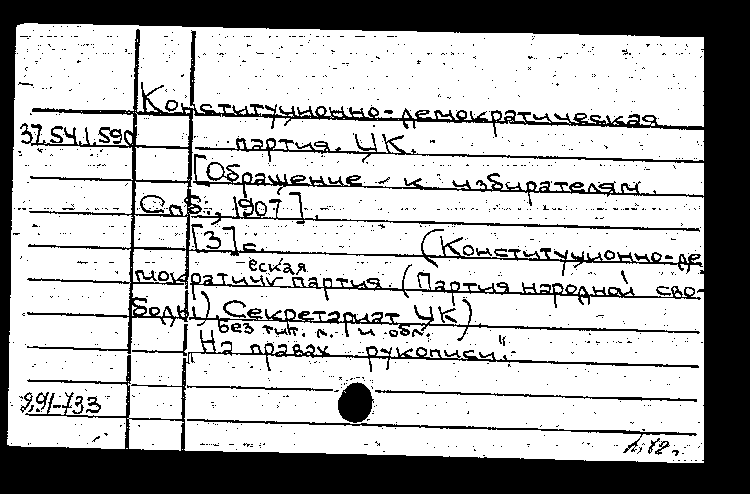 Конституционно-демократическая
37.54.1.590 партия. ЦК.
[Обращение к избирателям.
Спб., 1907].
[3] с. (Конституционно-де-
мократическая партия (Партия народной сво-
боды). Секретариат ЦК)
Без тит. л. и обл.
"На правах рукописи".
991-733